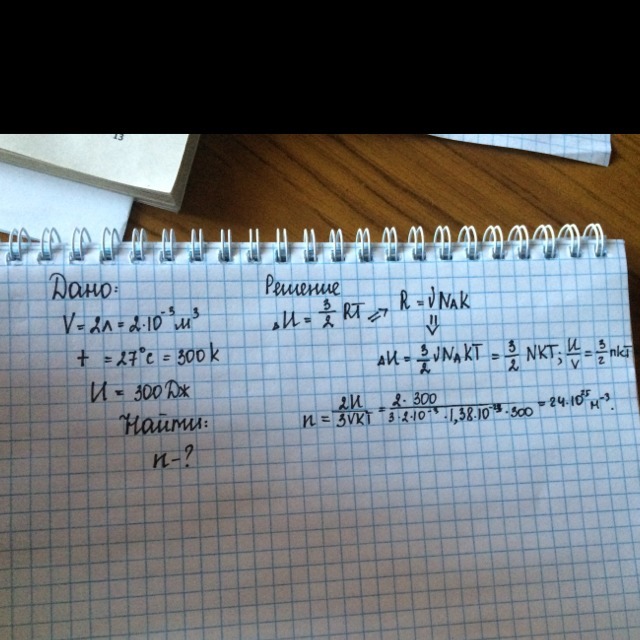 13
Дано:
V = 2л = 2·10⁻³ м³
t = 27°c = 300k
И = 300 Дж
Найти:
n-?
Решение
ΔИ = 3/2 RT => R = √NAK
⇓
ΔИ = 3/2 √NAKT = 3/2 NKT; И/V = 3/2 nkT
n = 2И/3VKT = 2·300/3·2·10⁻³·1,38·10⁻²³·300 = 24·10²⁵ м⁻³.